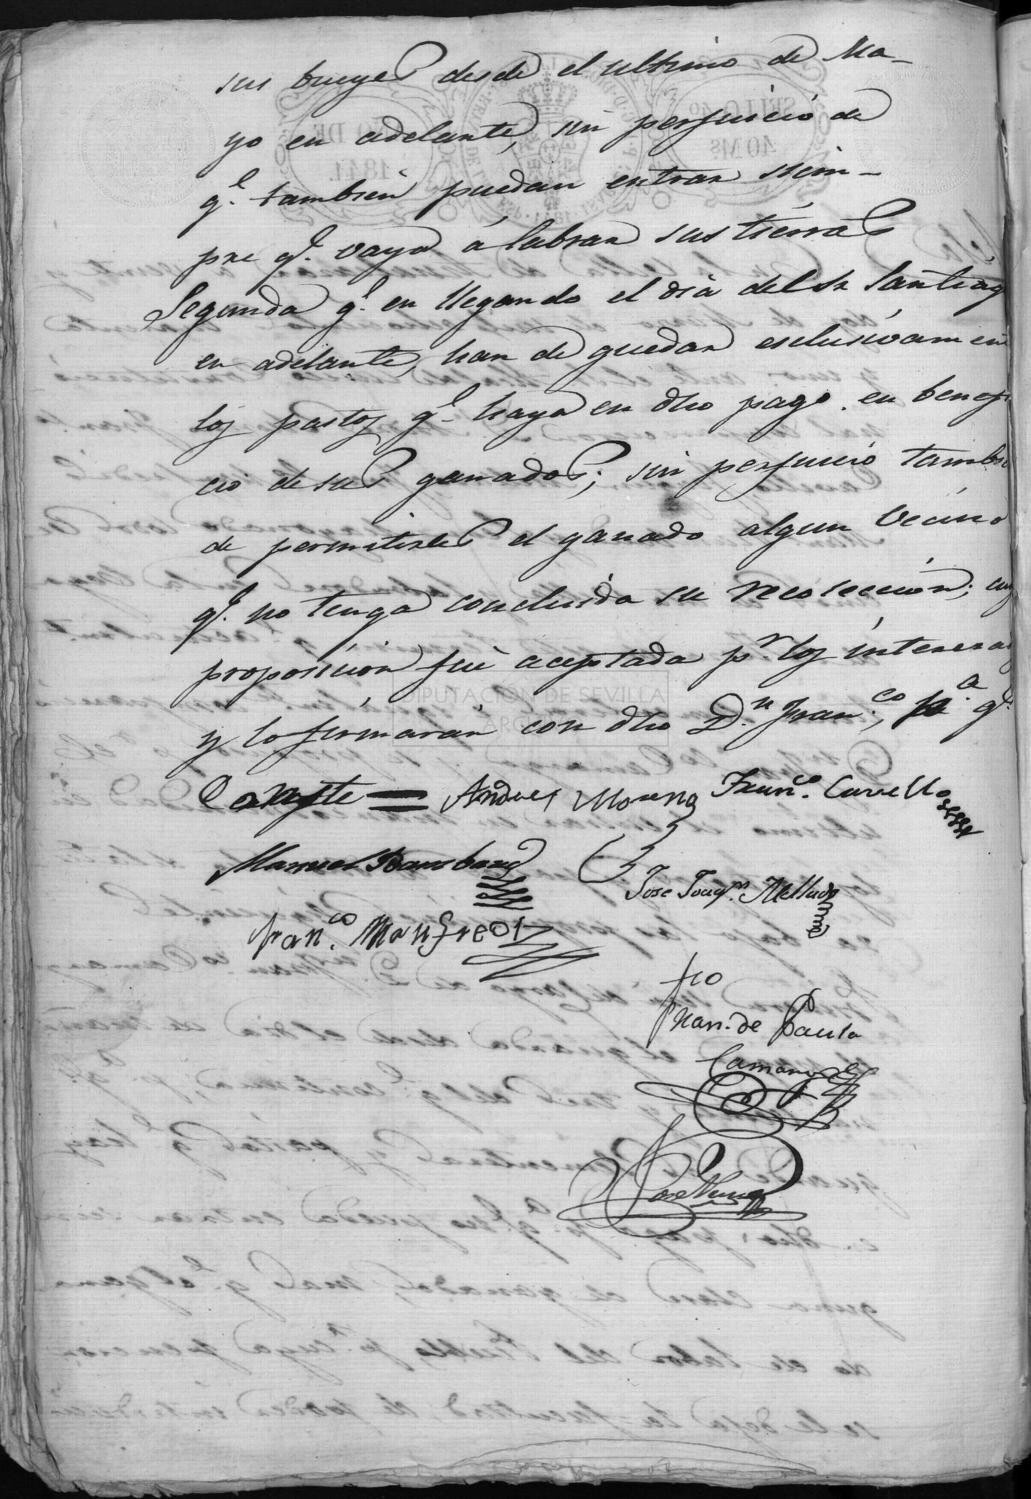 sus bueyes desde el ultimo de Ma-
yo en adelante, sin perjuicio de
q.e tambien puedan entrar siem-
pre q.e vaya á labrar sus tierras
Segunda q.e en llegando el dia del Sr Santiag
en adelante, han de quedar esclusivamen
los pastos q.e haya en dho pago en benefi
cio de sus ganados; sin perjuicio tambie
de permitirles el ganado algun vecino
q.e no tenga concluida su recoleccion; cuy
proposicion fué aceptada p.r los interesad
y lo firmarán con dho D.n Fran.co, p.a q.e
Conste = Andres Moreno Fran.co Curiello
Manuel
Jose Joaq.n Mellado
Fran.co Manfredi
fco
Fran. de Paula
Camargo
Jose
DIPUTACIÓN DE SEVILLA
ARCHIVO
SELLO 4o
40 Ms
AÑO DE
1841.